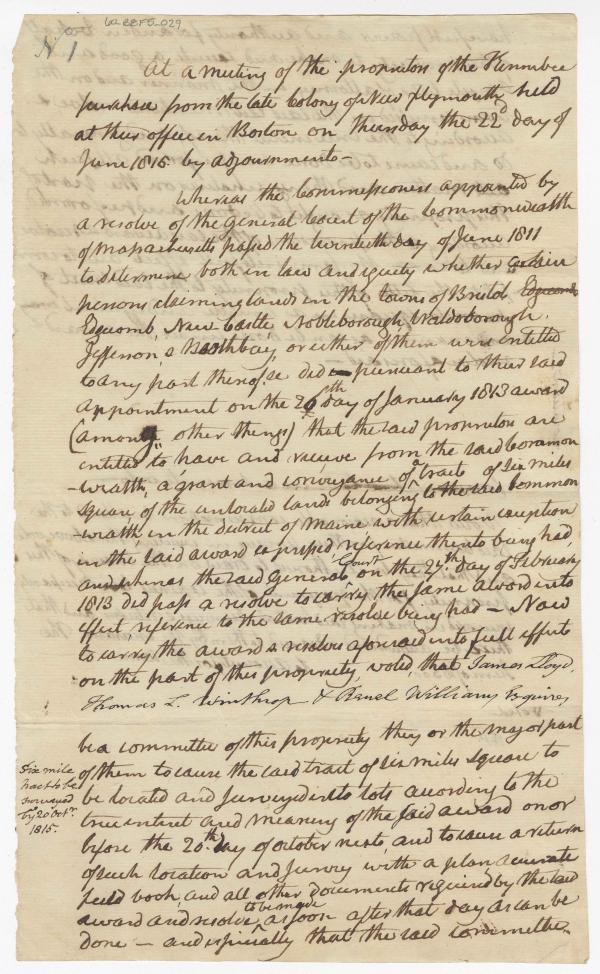 62 BBF5-029
No 1
At a meeting of the proprietors of the Kennebec
purchase from the late Colony of New Plymouth, held
at their office in Boston on Thursday the 22d day of
June 1815. by adjournments—
Whereas the Commissioners appointed by
a resolve of the General Court of the Commonwealth
of Massachusetts passed the twentieth day of June 1811
to determine both in law and equity whether certain
persons claiming lands in the towns of Bristol Edgcomb
Edgcomb, New Castle, Nobleborough, Waldoborough,
Jefferson, & Boothbay, or either of them were entitled
to any part thereof se did — pursuant to their said
appointment on the 26th day of January 1813 award
(among other things) that the said proprietors are
entitled to have and receive from the said Common
-wealth, a grant and conveyance of a tract of six miles
square of the unlocated lands belonging to the said Common
-wealth, in the district of Maine with certain exception
in the said award expressed, reference thereto being had,
and whereas the said General Court, on the 27th day of February
1813 did pass a resolve to carry the same award into
effect, reference to the same resolve being had — Now
to carry the award & resolves aforesaid into full effect
on the part of this propriety, voted, that James Lloyd,
Thomas L. Winthrop & Reuel Williams Esquires
be a committee of this propriety they or the major part
of them to cause the said tract of six miles square to
be located and surveyed into lots according to the
true intent and meaning of the said award on or
before the 20th day of october next, and to cause a return
of such location and survey with a plan accurate
field book, and all other documents required by the said
award and resolve, to be made as soon after that day as can be
done — and especially that the said committee
Six mile
tract to be
surveyed
by 20 Octr.
1815.